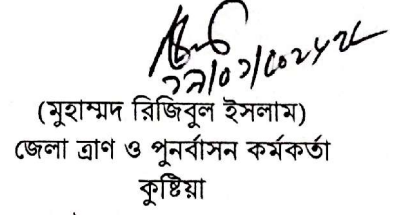 (মুহাম্মদ রিজিবুল ইসলাম)
জেলা ত্রাণ ও পুনর্বাসন কর্মকর্তা
কুষ্টিয়া